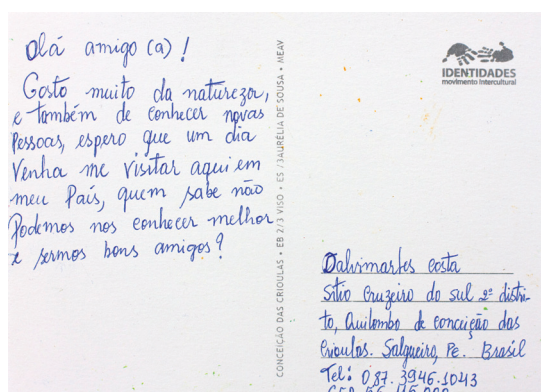 Olá amigo (a) !
Gosto muito da natureza,
e também de conhecer novas
Pessoas, espero que um dia
Venha me visitar aqui em
meu País, quem sabe não
Podemos nos conhecer melhor
e sermos bons amigos?
CONCEIÇÃO DAS CRIOULAS • EB 2/3 VISO • ES /JAURÉLIA DE SOUSA • MEAV
IDENTIDADES
movimento intercultural
Dalvimartes costa
Sítio Cruzeiro do sul 2º distri-
to, Quilombo de conceição das
Crioulas. Salgueiro, PE. Brasil
Tel: 087.3946.1043